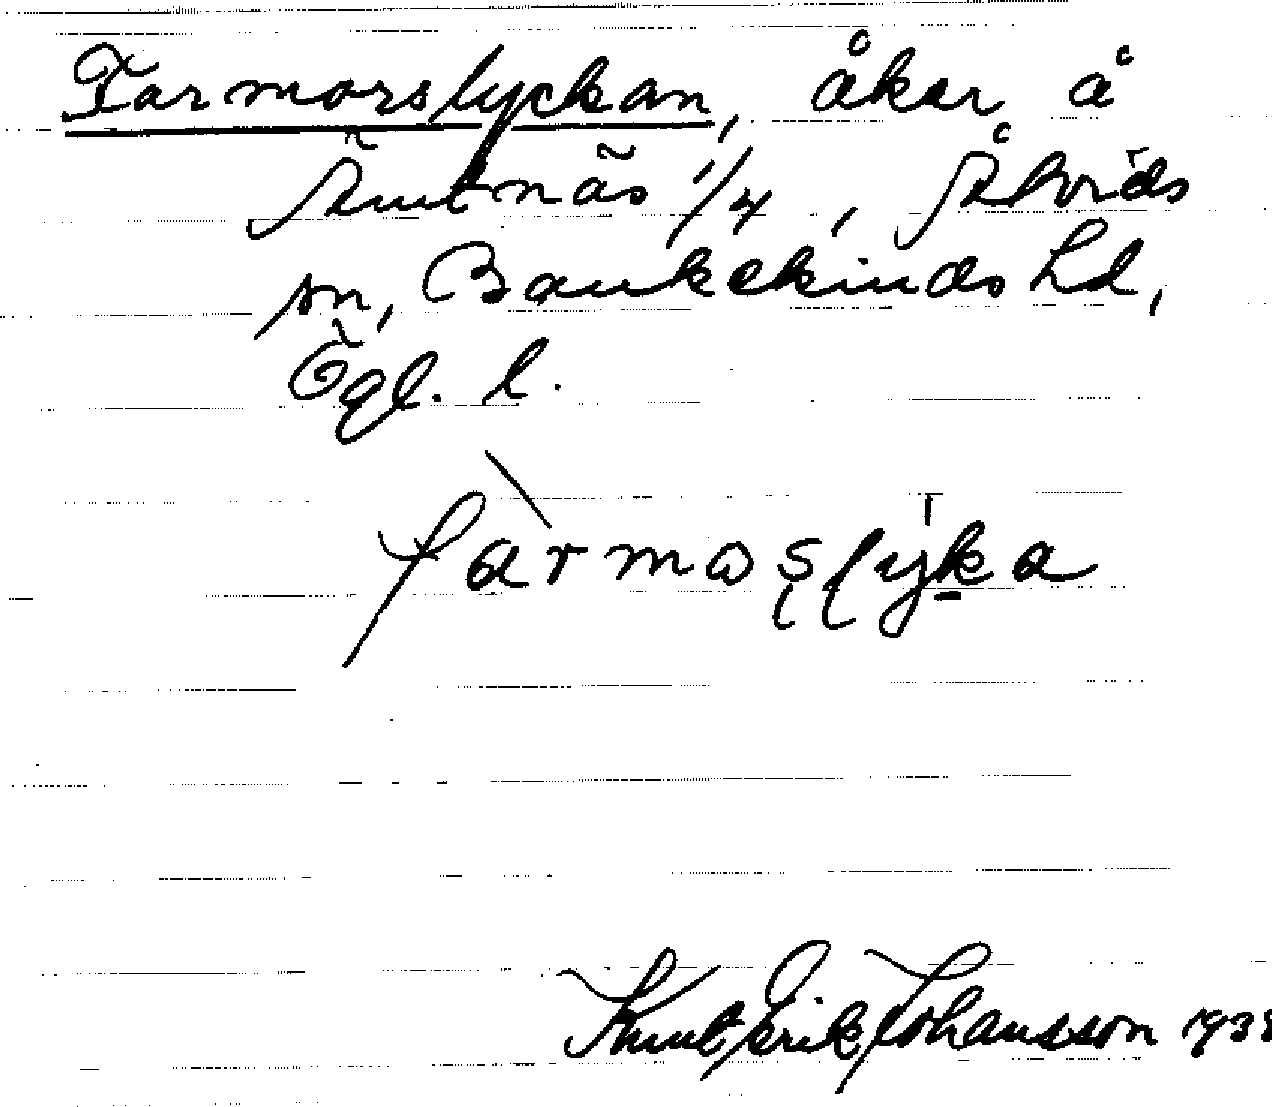 Farmorslyckan, åker å
Äntnäs 1/4, Åtvids
sn, Bankekinds hd,
Ögl. l.
farmaslyka
Knut Erik Johansson